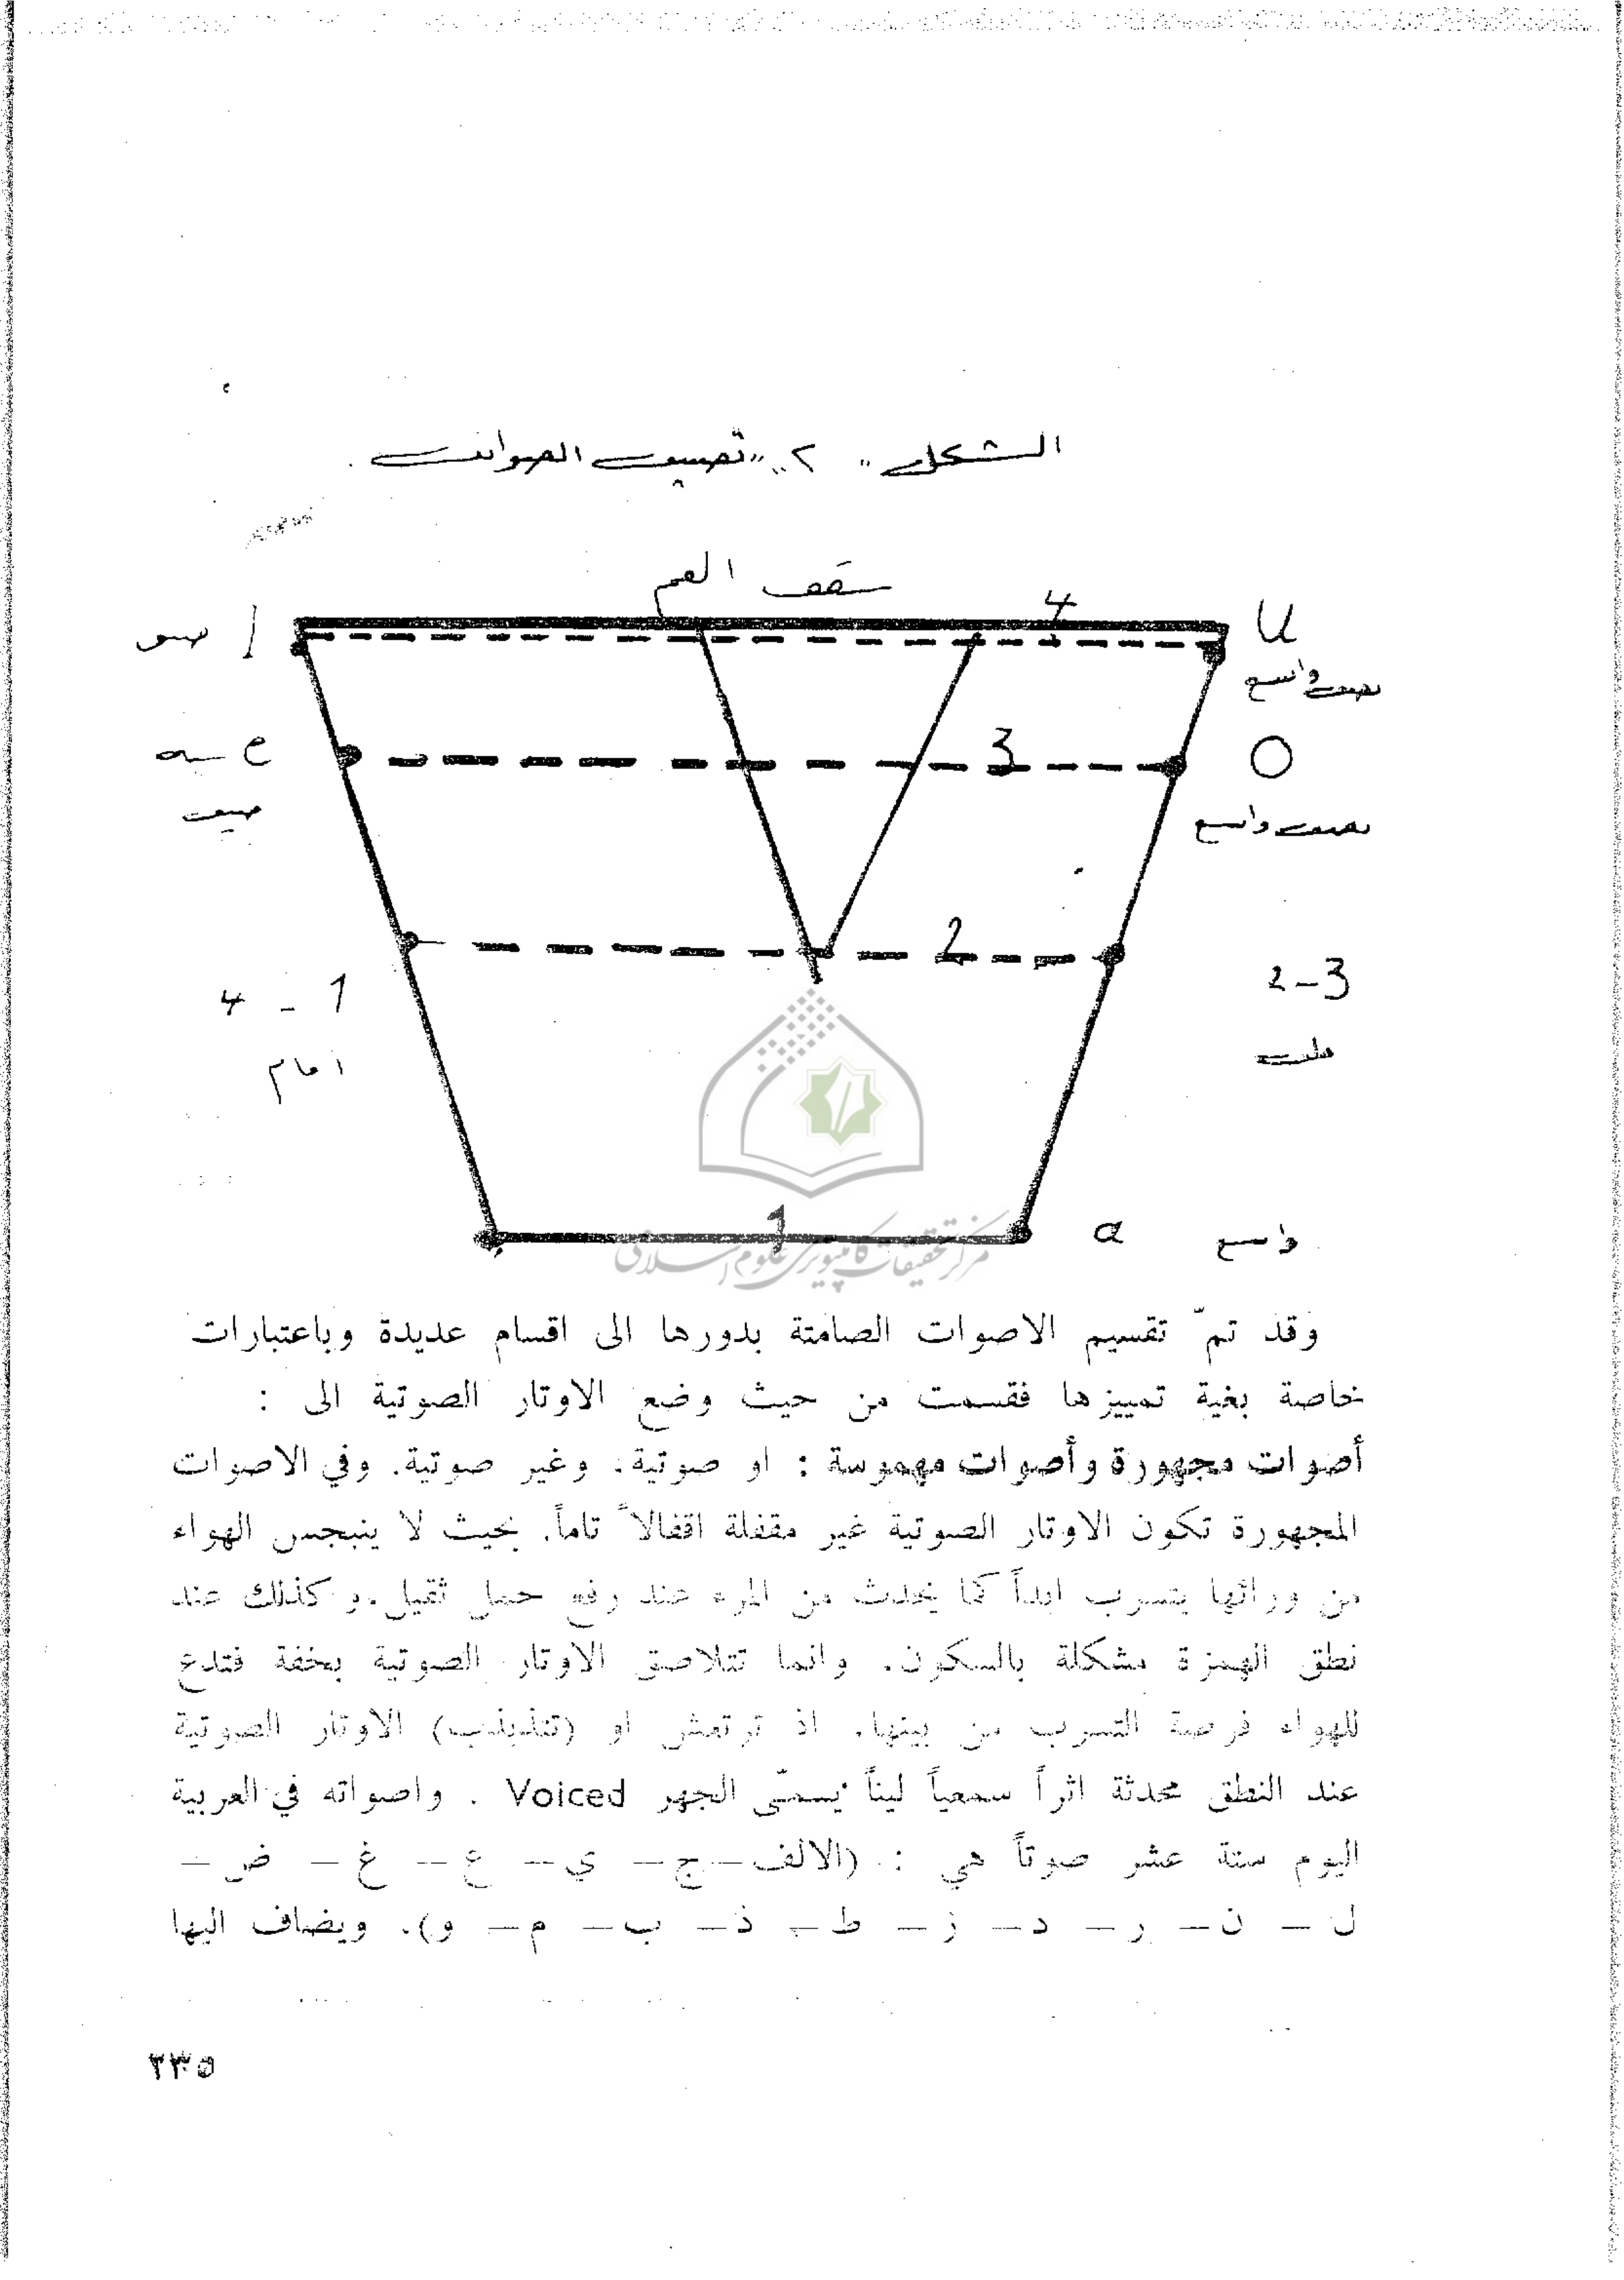 الشكل " ٢ " تصنيف الصوائت .
سقف الفم
4
U
نصف واسع
3
O
نصف واسع
e
2
2-3
4 - 1
خلف
امام
1
a
واسع
مركز تحقيقات كامپيوتري علوم اسلامي
وقد تمّ تقسيم الاصوات الصامتة بدورها الى اقسام عديدة وباعتبارات
خاصة بغية تمييزها فقسمت من حيث وضع الاوتار الصوتية الى :
أصوات مجهورة وأصوات مهموسة : او صوتية. وغير صوتية. وفي الاصوات
المجهورة تكون الاوتار الصوتية غير مقفلة اقفالاً تاماً. بحيث لا ينبجس الهواء
من ورائها يتسرب ابداً كما يحدث من المرء عند رفع حمل ثقيل. وكذلك عند
نطق الهمزة مشكلة بالسكون. وانما تتلاصق الاوتار الصوتية بخفة فتدع
للهواء فرصة التسرب من بينها. اذ ترتعش او (تتذبذب) الاوتار الصوتية
عند النطق محدثة اثراً سمعياً ليناً يسمّى الجهر Voiced . واصواته في العربية
اليوم ستة عشر صوتاً هي : (الالف — ج — ي — ع — غ — ض —
ل — ن — ر — د — ز — ط — ذ — ب — م — و). ويضاف اليها
٢٣٥